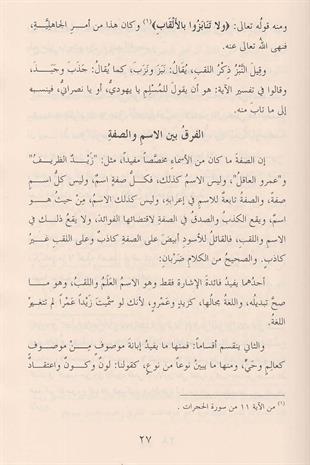 ومنه قولُه تعالى: ﴿ولا تَنَابَزُوا بالأَلْقَابِ﴾(١) وكان هذا من أمرِ الجاهليَّةِ،
فنهى اللهُ تعالى عنه.
وقيلَ النَّبْزُ ذِكْرُ اللقبِ، يُقَالُ: نَبَزَ ونَزَبَ، كما يُقالُ: جَذَبَ وجَبَذَ،
وقالوا في تفسيرِ الآيةِ: هو أن يقولَ للمُسْلِمِ يا يهوديُّ، أو يا نصرانيُّ، فينسبه
إلى ما تابَ منه.
الفرقُ بين الاسمِ والصفةِ
إن الصفةَ ما كان من الأسماءِ مخصَّصاً مفيداً، مثل: "زَيْدٌ الظريفُ"
و"عمرو العاقلُ"، وليس الاسمُ كذلك، فكلُّ صفةٍ اسمٌ، وليس كلُّ اسمٍ
صفةً، والصفةُ تابعة للاسمِ في إعرابِه، وليس كذلك الاسمُ، مِنْ حيثُ هو
اسمٌ، ويقع الكذبُ والصدقُ في الصفةِ لاقتضائِها الفوائدَ، ولا يقعُ ذلك في
الاسمِ واللقبِ، فالقائلُ للأسودِ أبيضَ على الصفةِ كاذبٌ وعلى اللقبِ غيرُ
كاذبٍ. والصحيحُ من الكلامِ ضَرْبَانِ:
أحدُهما يفيدُ فائدةَ الإشارةِ فقط وهو الاسمُ العَلَمُ واللقبُ، وهو ما
صحَّ تبديلُه، واللغةُ بحالِها، كزيدٍ وعَمْرٍو، لأنك لو سَمَّيتَ زَيْداً عَمْراً لم تتغيرْ
اللغةُ.
والثاني ينقسم أقساماً: فمنها ما يفيدُ إبانةَ موصوفٍ مِنْ موصوفٍ
كعالِمٍ وحَيٍّ، ومنها ما يبينُ نوعاً من نوعٍ، كقولنا: لونٌ وكَونٌ واعتقادٌ
(١) من الآية ١١ من سورة الحجرات .
٢٧